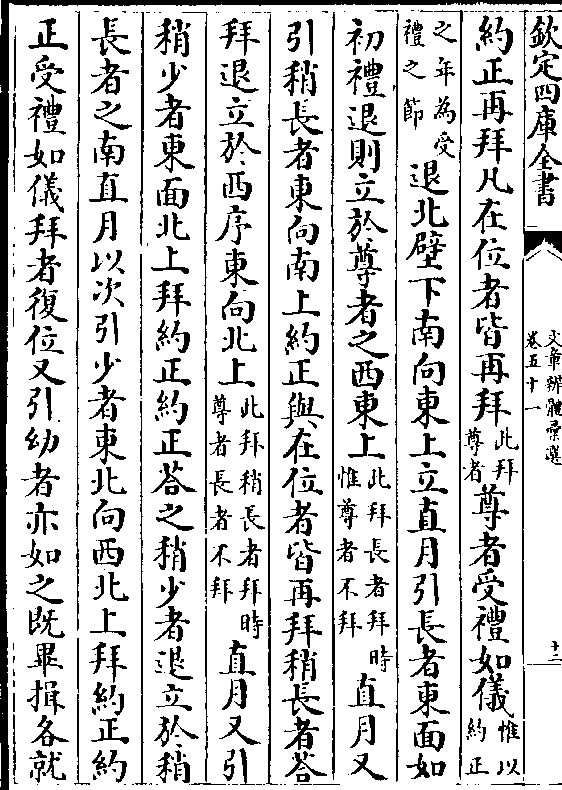 欽定四庫全書
文章辨體彙選
卷五十一
十二
約正再拜凡在位者皆再拜此拜尊者尊者受禮如儀惟以約正
之年為受禮之節退北壁下南向東上立直月引長者東面如
初禮退則立於尊者之西東上此拜長者拜時惟尊者不拜直月又
引稍長者東向南上約正與在位者皆再拜稍長者荅
拜退立於西序東向北上此拜稍長者拜時尊者長者不拜直月又引
稍少者東面北上拜約正約正荅之稍少者退立於稍
長者之南直月以次引少者東北向西北上拜約正約
正受禮如儀拜者復位又引幼者亦如之既畢揖各就